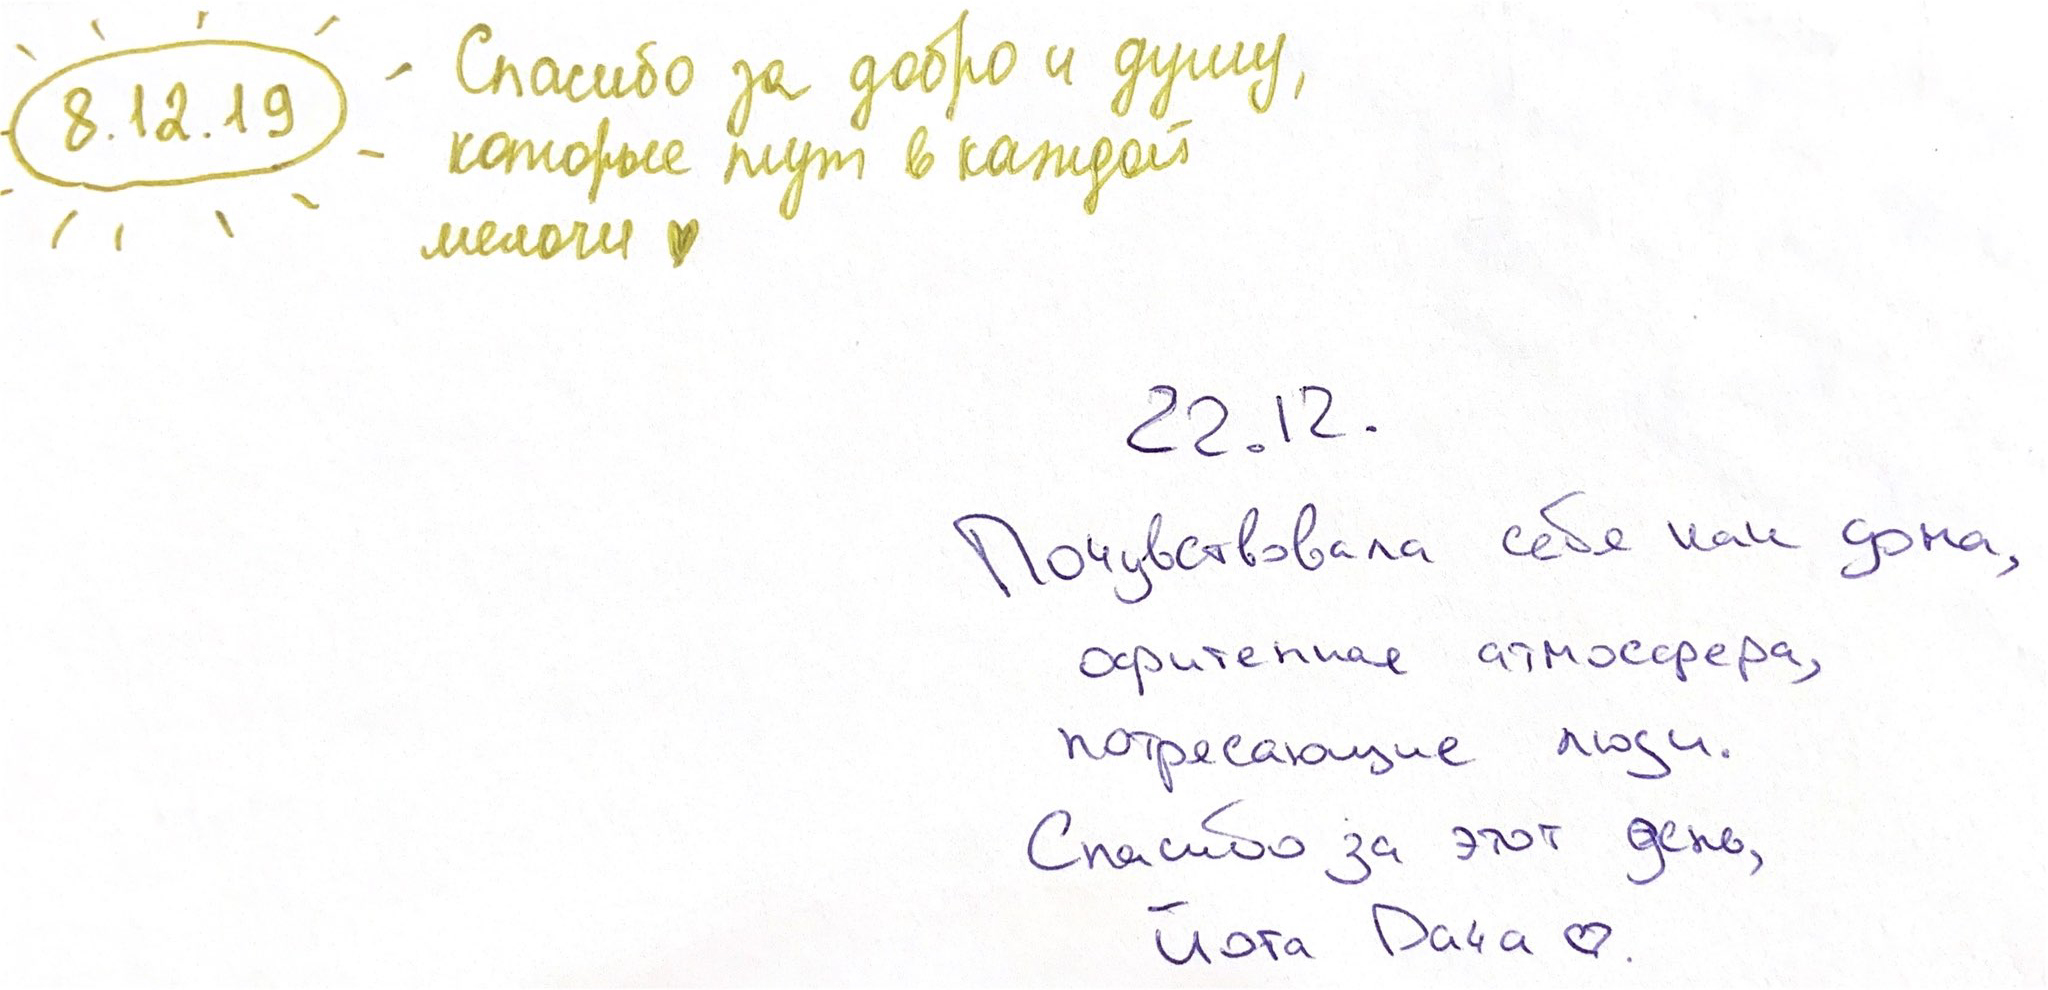 8.12.19
Спасибо за добро и душу,
которые тут в каждой
мелочи ♥
22.12.
Почувствовала себя как дома,
офигенная атмосфера,
потресающие люди.
Спасибо за этот день,
Йота Дача ♡.